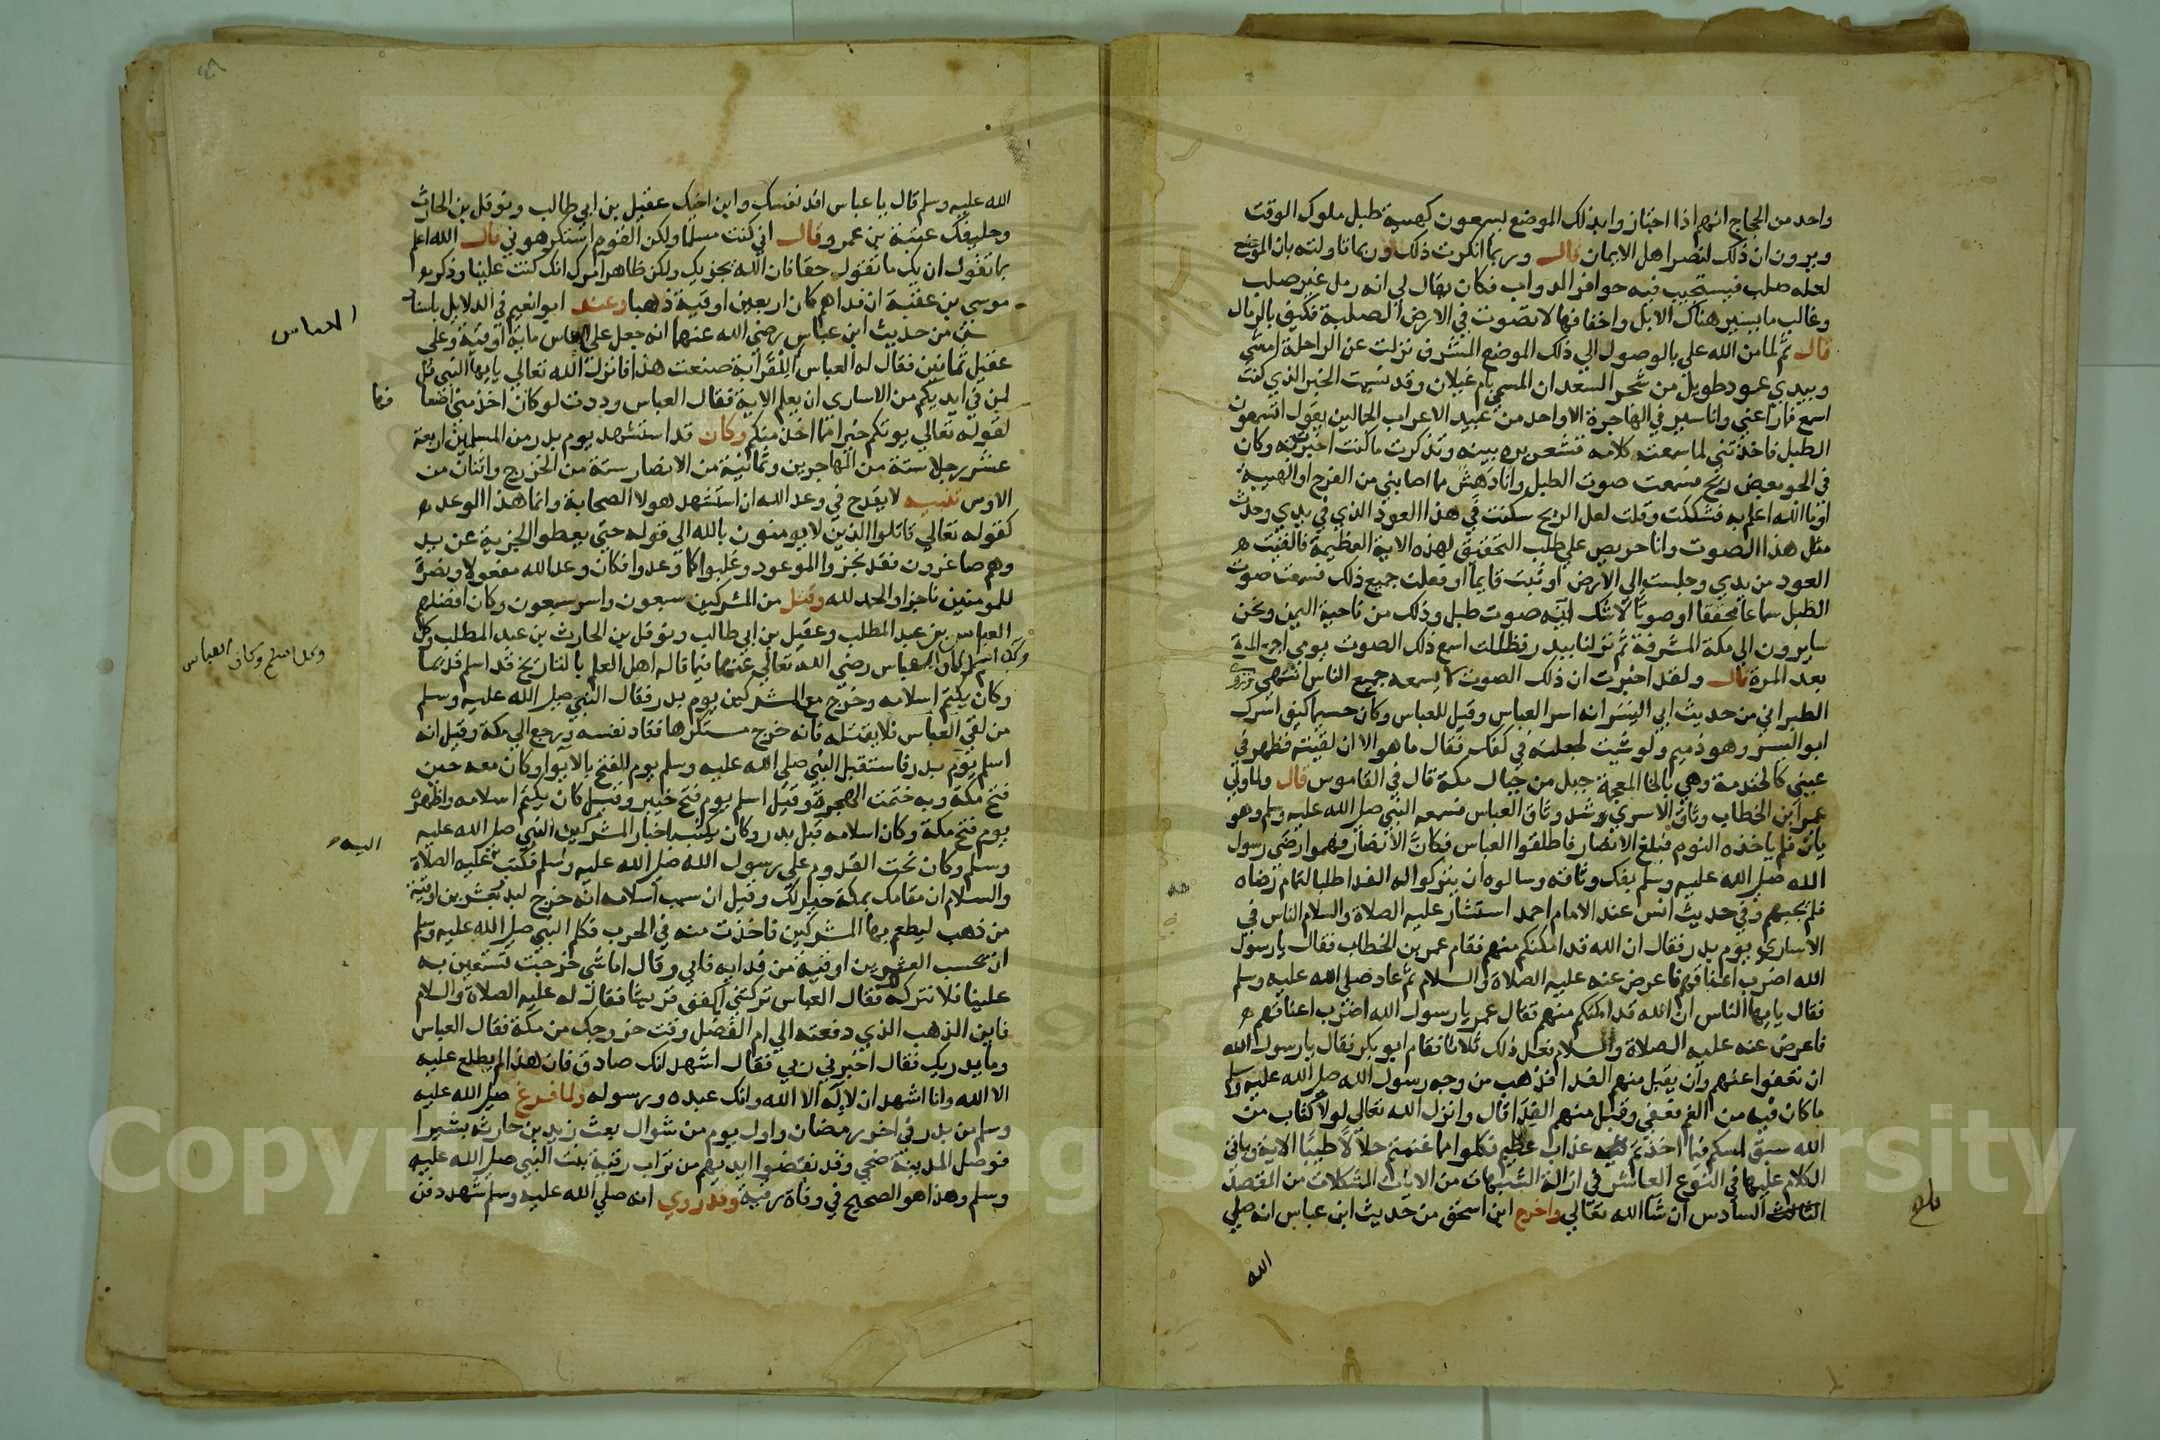 واحد من الحجاج انهم اذا اجتازوا بذلك الموضع يسمعون كهيية طبل ملوك الوقت
ويرون ان ذلك لنصر اهل الايمان قال وربما انكرت ذلك وربما تاولته بان الموضع
لعله صلب فيستجيب فيه حوافر الدواب فكان يقال لي انه رمل غير صلب
وغالب ما يسير هناك الابل واخفافها لا تصوت في الارض الصلبة فكيف بالرمال
قال ثم لما من الله علي بالوصول الي ذلك الموضع المشرف نزلت عن الراحلة امشي
وبيدي عود طويل من شجر السعدان المسمي بام غيلان وقد نسيت الخبر الذي كنت
اسمع فما راعني وانا سير في الهاجرة الا واحد من عبيد الاعراب الجمالين يقول اتسمعون
الطبل فاخذتني لما سمعت كلامه قشعريره بينه وتذكرت ما كنت اخبرت به وكان
في الجو بعض ريح فسمعت صوت الطبل وانا دهش مما اصابني من الفرح او الهيبة
او ما الله اعلم به فشككت وقلت لعل الريح سكنت في هذا العود الذي في يدي وحدث
مثل هذا الصوت وانا حريص علي طلب التحقيق لهذه الاية العظيمة فالقيت
العود من يدي وجلست الي الارض او ثبت قايما او فعلت جميع ذلك فسمعت صوت
الطبل سماعا محققا او صوتا لا شك انه صوت طبل وذلك من ناحية اليمن ونحن
سايرون الي مكة المشرفة ثم نزلنا ببدر فظللت اسمع ذلك الصوت يومي اجمع المرة
بعد المرة قال ولقد اخبرت ان ذلك الصوت لا يسمعه جميع الناس انتهي وروي
الطبراني من حديث ابي اليسر انه اسر العباس وقيل للعباس وكان جسيما كيف اسرك
ابو اليسر وهو ذميم ولو شيت لجعلته في كفك فقال ما هو الا ان لقيته فظهر في
عيني كالخندمة وهي بالخا المعجمة جبل من جبال مكة قال في القاموس قال ولما ولي
عمر ابن الخطاب وثاق الاسري شد وثاق العباس فسمعه النبي صلي الله عليه وسلم وهو
يان فلم ياخذه النوم فبلغ الانصار فاطلقوا العباس فكان الانصار فهموا رضي رسول
الله صلي الله عليه وسلم بفك وثاقه وسالوه ان يتركوا له الفدا طلبا لتمام رضاه
فلم يجبهم وفي حديث انس عند الامام احمد استشار عليه الصلاة والسلام الناس في
الاساري يوم بدر فقال ان الله قد امكنكم منهم فقام عمر بن الخطاب فقال يا رسول
الله اضرب اعناقهم فاعرض عنه عليه الصلاة والسلام ثم عاد صلي الله عليه وسلم
فقال يا يها الناس ان الله قد امكنكم منهم فقال عمر يا رسول الله اضرب اعناقهم
فاعرض عنه عليه الصلاة والسلام فعل ذلك ثلاثا فقام ابو بكر فقال يا رسول الله
ان تعفوا عنهم وان يقبل منهم الفدا فذهب من وجه رسول الله صلي الله عليه وسلم
ما كان فيه من الغم فعفي وقبل منهم الفدا قال وانزل الله تعالي لولا كتاب من
الله سبق لمسكم فيما اخذتم عذاب عظيم فكلوا مما غنمتم حلالا طيبا الاية وياتي
الكلام عليها في النوع العاشر في ازالة الشبهات من الايات المشكلات من المقصد
السادس ان شا الله تعالي واخرج ابن اسحق من حديث ابن عباس انه صلي
بلغ
الله
الله عليه وسلم قال يا عباس افد نفسك وابن اخيك عقيل بن ابي طالب ونوفل بن الحارث
وحليفك عتبة بن عمرو قال اني كنت مسلما ولكن القوم استكرهوني قال الله اعلم
بما تقول ان يك ما تقول حقا فان الله يجزيك ولكن ظاهر امرك انك كنت علينا وذكر
موسي بن عقبة ان فداهم كان اربعين اوقية ذهبا وعند ابو انعيم في الدلايل باسنا
من حديث ابن عباس رضي الله عنهما انه جعل علي العباس ماية اوقية وعلي
العباس
عقيل ثمانين فقال له العباس اللقرابة صنعت هذا فانزل الله تعالي يا يها النبي قل
لمن في ايديكم من الاساري ان يعلم الاية فقال العباس وددت لو كان اخذ مني اضعا
فها
لقوله تعالي يوتكم خيرا مما اخذ منكم وكان قد استشهد يوم بدر من المسلمين اربعة
عشر رجلا ستة من المهاجرين وثمانية من الانصار ستة من الخزرج واثنان من
الاوس تنبيه لا يقدح في وعد الله ان استشهد هولا الصحابة وانما هذا الوعد
كقوله تعالي قاتلوا الذين لا يومنون بالله الي قوله حتي يعطوا الجزية عن يد
وهم صاغرون فقد نجز الموعود وغلبوا كما وعدوا فكان وعد الله مفعولا ونصره
للمومنين ناجزا والحمد لله وقتل من المشركين سبعون واسر سبعون وكان افضلهم
العباس بن عبد المطلب وعقيل بن ابي طالب ونوفل بن الحارث بن عبد المطلب وكل
اسلم وكان العباس رضي الله تعالي عنه فيما قاله اهل العلم بالتاريخ قد اسلم قديما
وكل اسلم وكان العباس
وكان يكتم اسلامه وخرج مع المشركين يوم بدر فقال النبي صلي الله عليه وسلم
من لقي العباس فلا يقتله فانه خرج مستكرها ففاد نفسه ورجع الي مكة وقيل انه
اسلم يوم بدر فاستقبل النبي صلي الله عليه وسلم يوم الفتح بالابوا وكان معه حين
فتح مكة وبه ختمت الهجرة وقيل اسلم يوم فتح خيبر وقيل كان يكتم اسلامه واظهره
يوم فتح مكة وكان اسلامه قبل بدر وكان يكتب اخبار المشركين النبي صلي الله عليه
وسلم وكان تحت القدوم علي رسول الله صلي الله عليه وسلم فكتب عليه الصلاة
اليه
والسلام ان مقامك بمكة خير لك وقيل ان سبب اسلامه انه خرج لبدر بعشرين اوقية
من ذهب ليطعم بها المشركين فاخذت منه في الحرب فكلم النبي صلي الله عليه وسلم
ان يحسب العشرين اوقية من فدايه فابي وقال اما شي خرجت تستعين به
علينا فلا نتركه لك فقال العباس تركتني اتكفف قريشا فقال له عليه الصلاة والسلام
فاين الذهب الذي دفعته الي ام الفضل وقت خروجك من مكة فقال العباس
وما يدريك فقال اخبرني ربي فقال اشهد انك صادق فان هذا لم يطلع عليه
الا الله وانا اشهد ان لا اله الا الله وانك عبده ورسوله ولما فرغ صلي الله عليه
وسلم من بدر في اخر رمضان واول يوم من شوال بعث زيد بن حارثه بشيرا
فوصل المدينة ضحي وقد نفضوا ايديهم من تراب رقية بنت النبي صلي الله عليه
وسلم وهذا هو الصحيح في وفاة رقية وقد روي انه صلي الله عليه وسلم شهد دفن